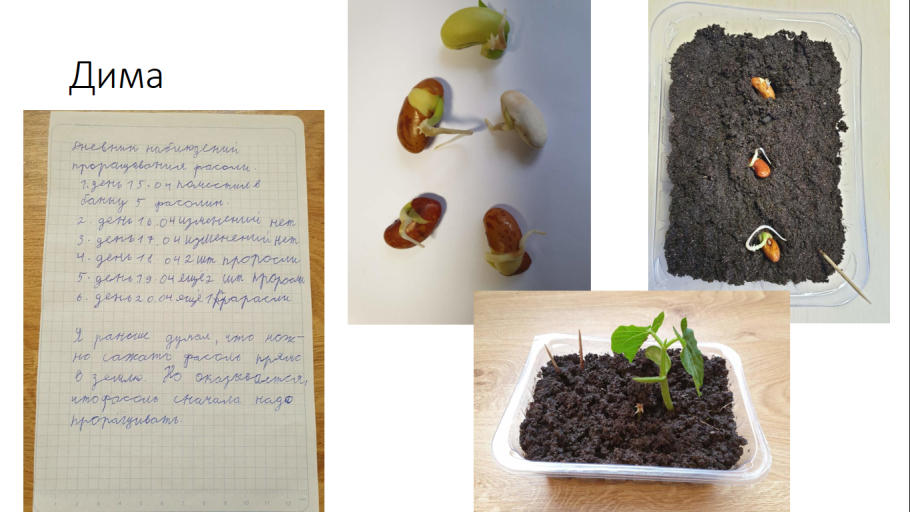 Дима
Дневник наблюдений
проращивания фасоли.
1. день 15.04 поместил в
банку 5 фасолин.
2. день 16.04 изменений нет
3. день 17.04 изменений нет
4. день 18.04 2 шт проросли
5. день 19.04 еще 2 шт проросли
6. день 20.04 ещё 1
Я раньше думал, что мож-
но сажать фасоль прямо
в землю. Но оказывается,
что фасоль сначала надо
проращивать.